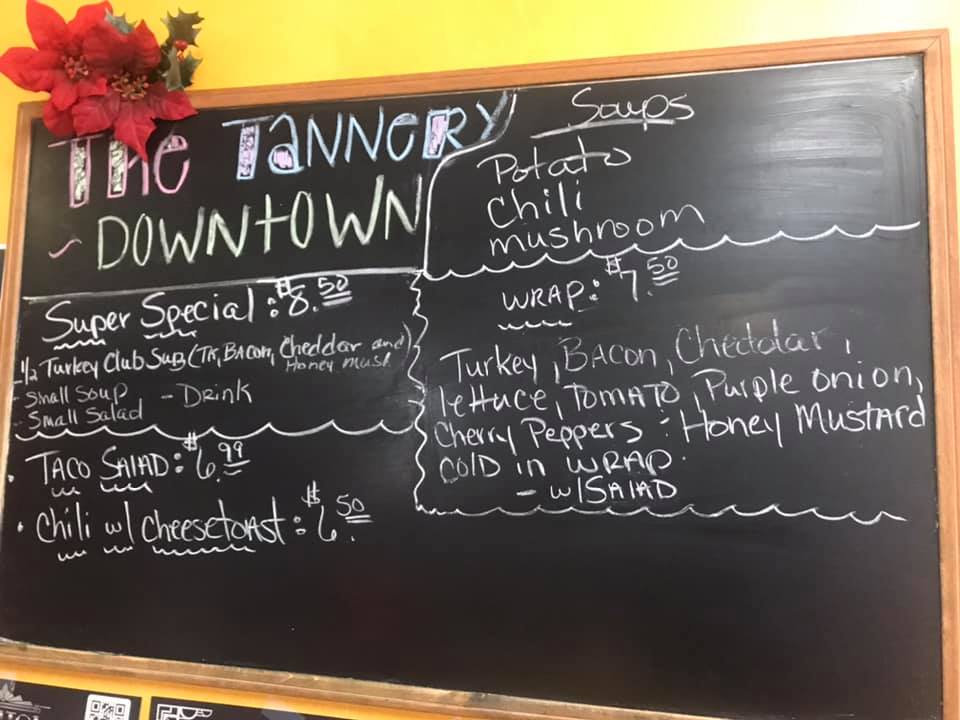 The Tannery
~ Downtown
Super Special: $8.50
- 1/2 Turkey Club Sub (TK, Bacon, Cheddar and Honey Must.)
- Small Soup - Drink
- Small Salad
• Taco Salad: $6.99
• Chili w/ Cheesetoast: $6.50
Soups
Potato
Chili
mushroom
Wrap: $7.50
Turkey, Bacon, Cheddar,
lettuce, Tomato, Purple onion,
Cherry Peppers : Honey Mustard
Cold in wrap.
- w/ Salad